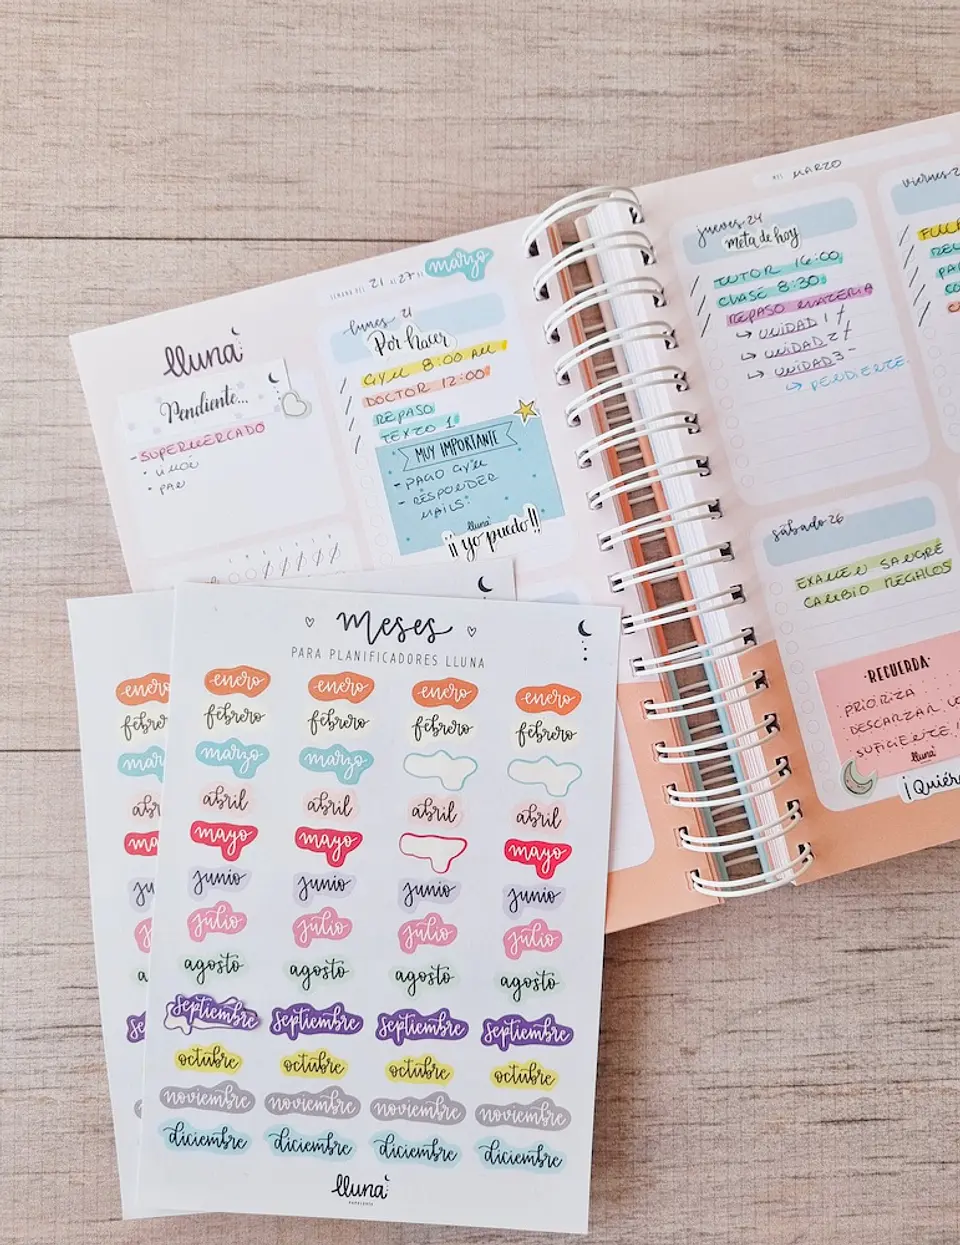 lluna
Pendiente...
-SUPERMERCADO
• PAN
SEMANA DEL 21 AL 27 DE
marzo
lunes 21
Por hacer
GYM 8:00 AM
DOCTOR 12:00
REPASO
TEXTO 1
MUY IMPORTANTE
- PAGO GYM
- RESPONDER
MAILS!
lluna
¡¡ yo puedo!!
MES MARZO
jueves 24
meta de hoy
TUTOR 16:00
CLASE 8:30
REPASO MATERIA
↳ UNIDAD 1
↳ UNIDAD 2
↳ UNIDAD 3 -
↳ PENDIENTE
viernes 2
sábado 26
EXAMEN SANGRE
CAMBIO REGALOS
·RECUERDA·
PRIORIZA
DESCANSAR LO
SUFICIENTE!
lluna
¡Quiér
meses
PARA PLANIFICADORES LLUNA
enero enero enero enero enero
febrero febrero febrero febrero febrero
mar marzo marzo
abril abril abril abril
ma mayo mayo mayo
ju junio junio junio junio
j julio julio julio julio
a agosto agosto agosto agosto
se septiembre septiembre septiembre septiembre
octubre octubre octubre octubre
noviembre noviembre noviembre noviembre
diciembre diciembre diciembre diciembre
lluna
PAPELERÍA